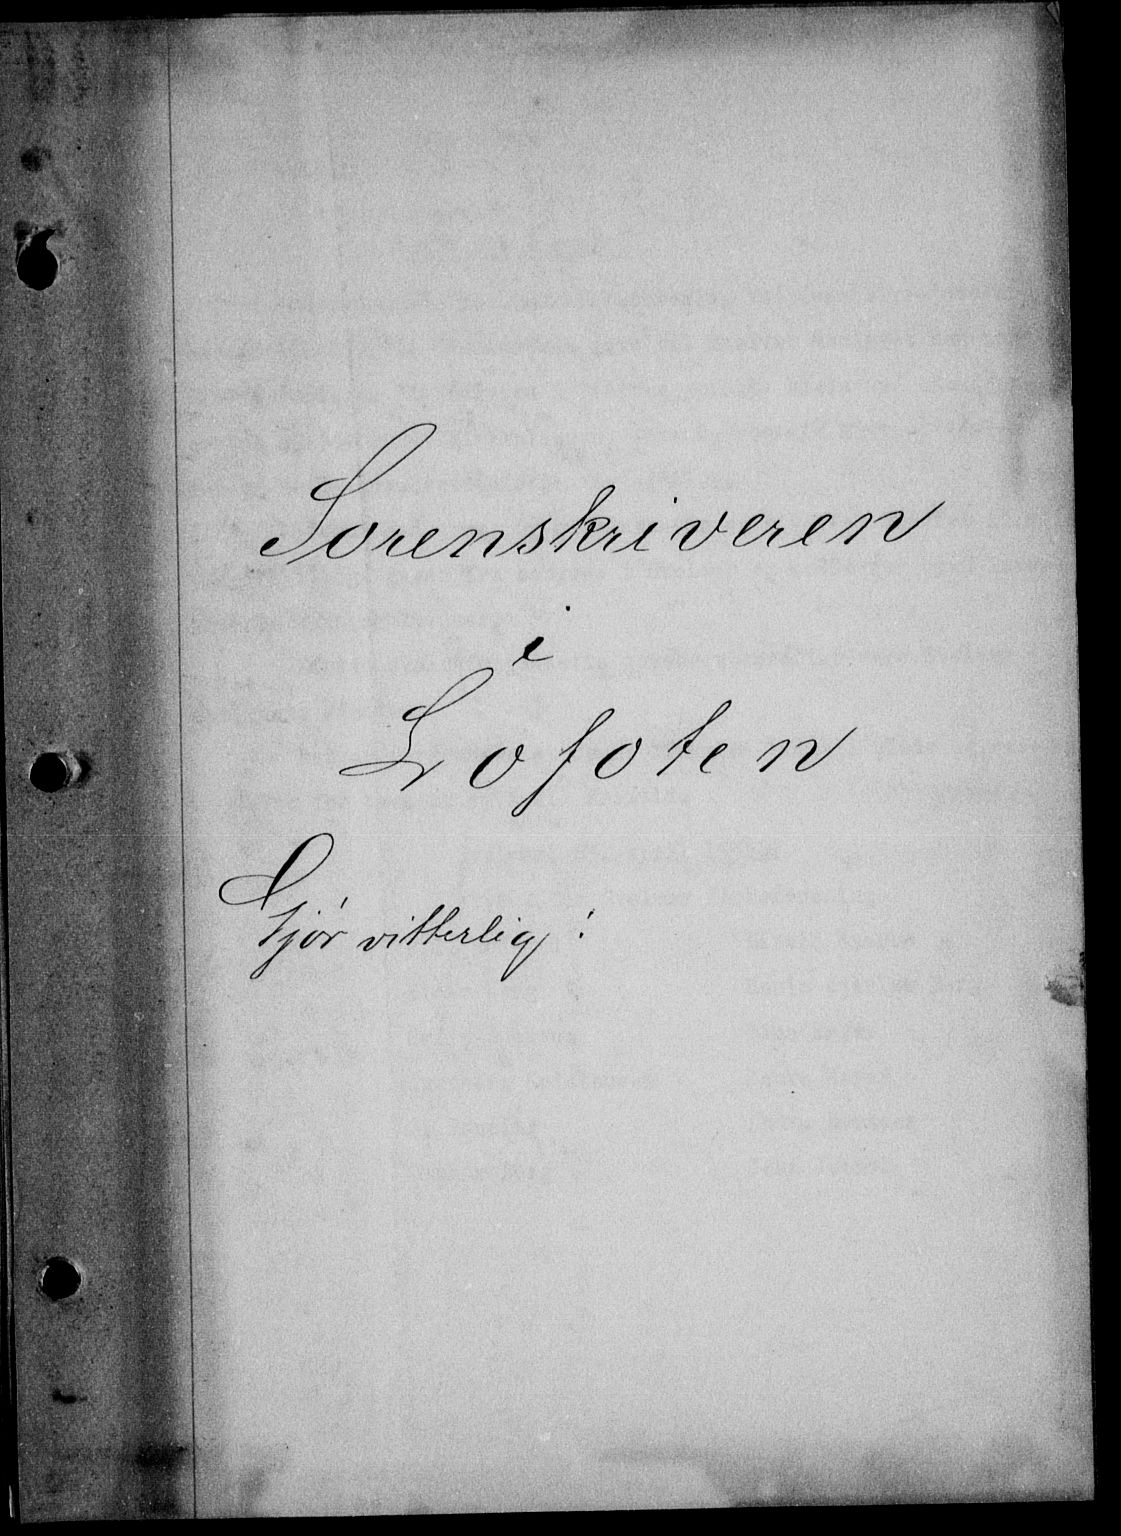 Sorenskriveren
i
Lofoten
Gjør vitterlig: